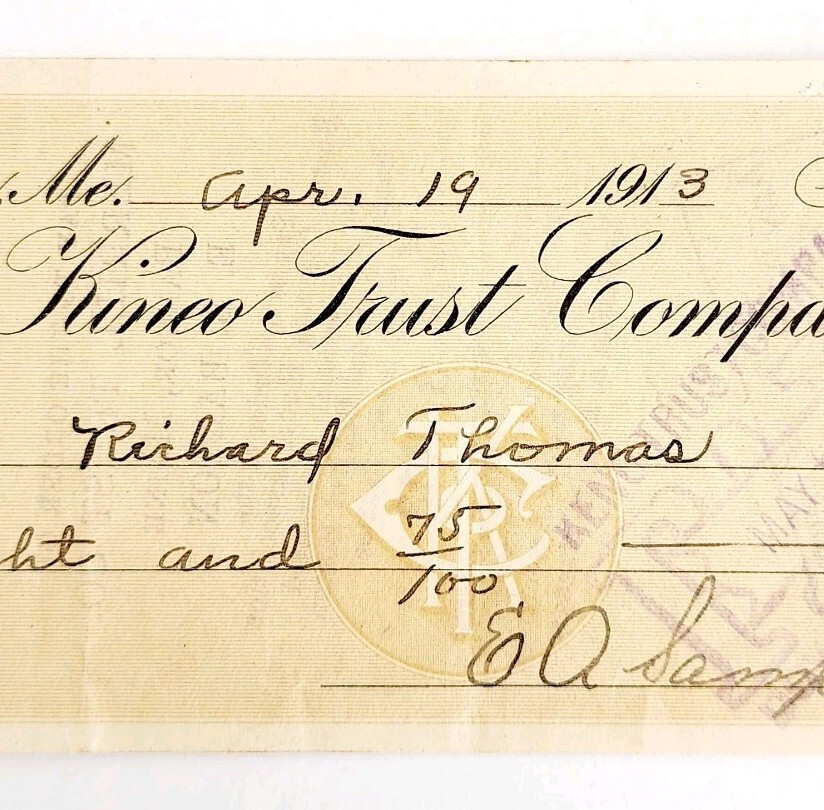 Me. Apr. 19 1913
Kineo Trust Compa
Richard Thomas
ht and 75/100
E A Samp
KINEO TRUST COMPA
MAY